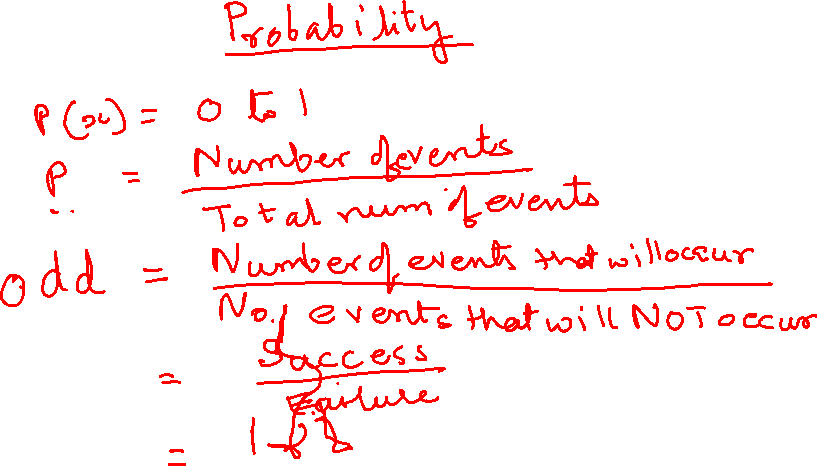 Probability
P(x) = 0 to 1
P = Number of events
Total num of events
Odd = Number of events that will occur
No. of events that will NOT occur
= Success
Failure
=